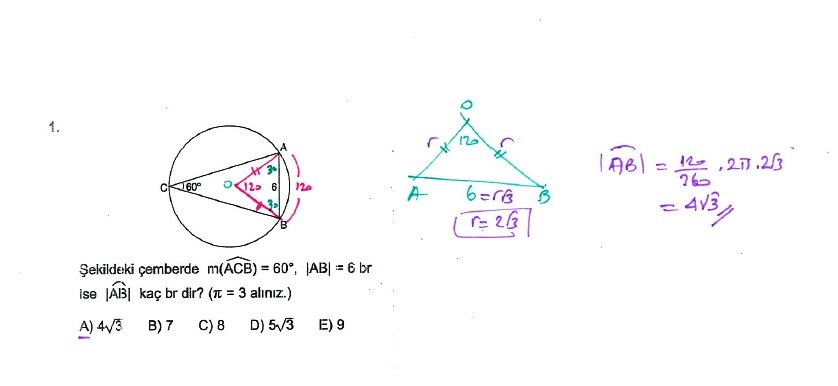 1.
A
C
60°
O
120
30
30
6
120
B
Şekildeki çemberde m(ACB) = 60°, |AB| = 6 br
ise |AB| kaç br dir? (π = 3 alınız.)
A) 4√3 B) 7 C) 8 D) 5√3 E) 9
O
r 120 r
A 6 = r√3 B
r = 2√3
|AB| = 120/360 . 2π . 2√3
= 4√3 //